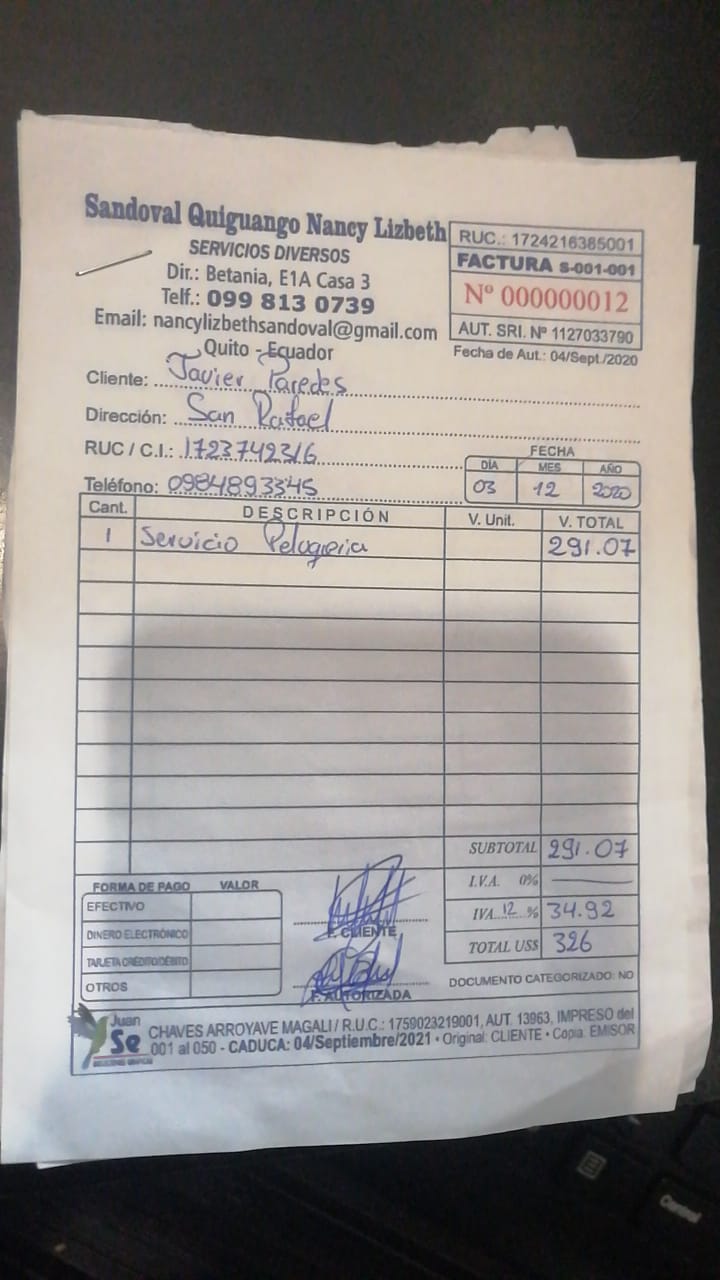 Sandoval Quiguango Nancy Lizbeth
SERVICIOS DIVERSOS
Dir.: Betania, E1A Casa 3
Telf.: 099 813 0739
Email: nancylizbethsandoval@gmail.com
Quito - Ecuador
RUC.: 1724216385001
FACTURA S-001-001
Nº 000000012
AUT. SRI. Nº 1127033790
Fecha de Aut.: 04/Sept./2020
Cliente: Javier Paredes
Dirección: San Rafael
RUC / C.I.: 1723742316
Teléfono: 0984893345
FECHA
DÍA MES AÑO
03 12 2020
Cant. DESCRIPCIÓN V. Unit. V. TOTAL
1 Servicio Peluqueria 291.07
SUBTOTAL 291.07
I.V.A. 0% —
IVA 12 % 34.92
TOTAL US$ 326
FORMA DE PAGO VALOR
EFECTIVO
DINERO ELECTRÓNICO
TARJETA CRÉDITO/DÉBITO
OTROS
F. CLIENTE
F. AUTORIZADA
DOCUMENTO CATEGORIZADO: NO
Juan
Se
CHAVES ARROYAVE MAGALI / R.U.C.: 1759023219001, AUT. 13963, IMPRESO del
001 al 050 - CADUCA: 04/Septiembre/2021 • Original: CLIENTE • Copia: EMISOR
Control